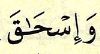 وَإِسْحَٰقَ